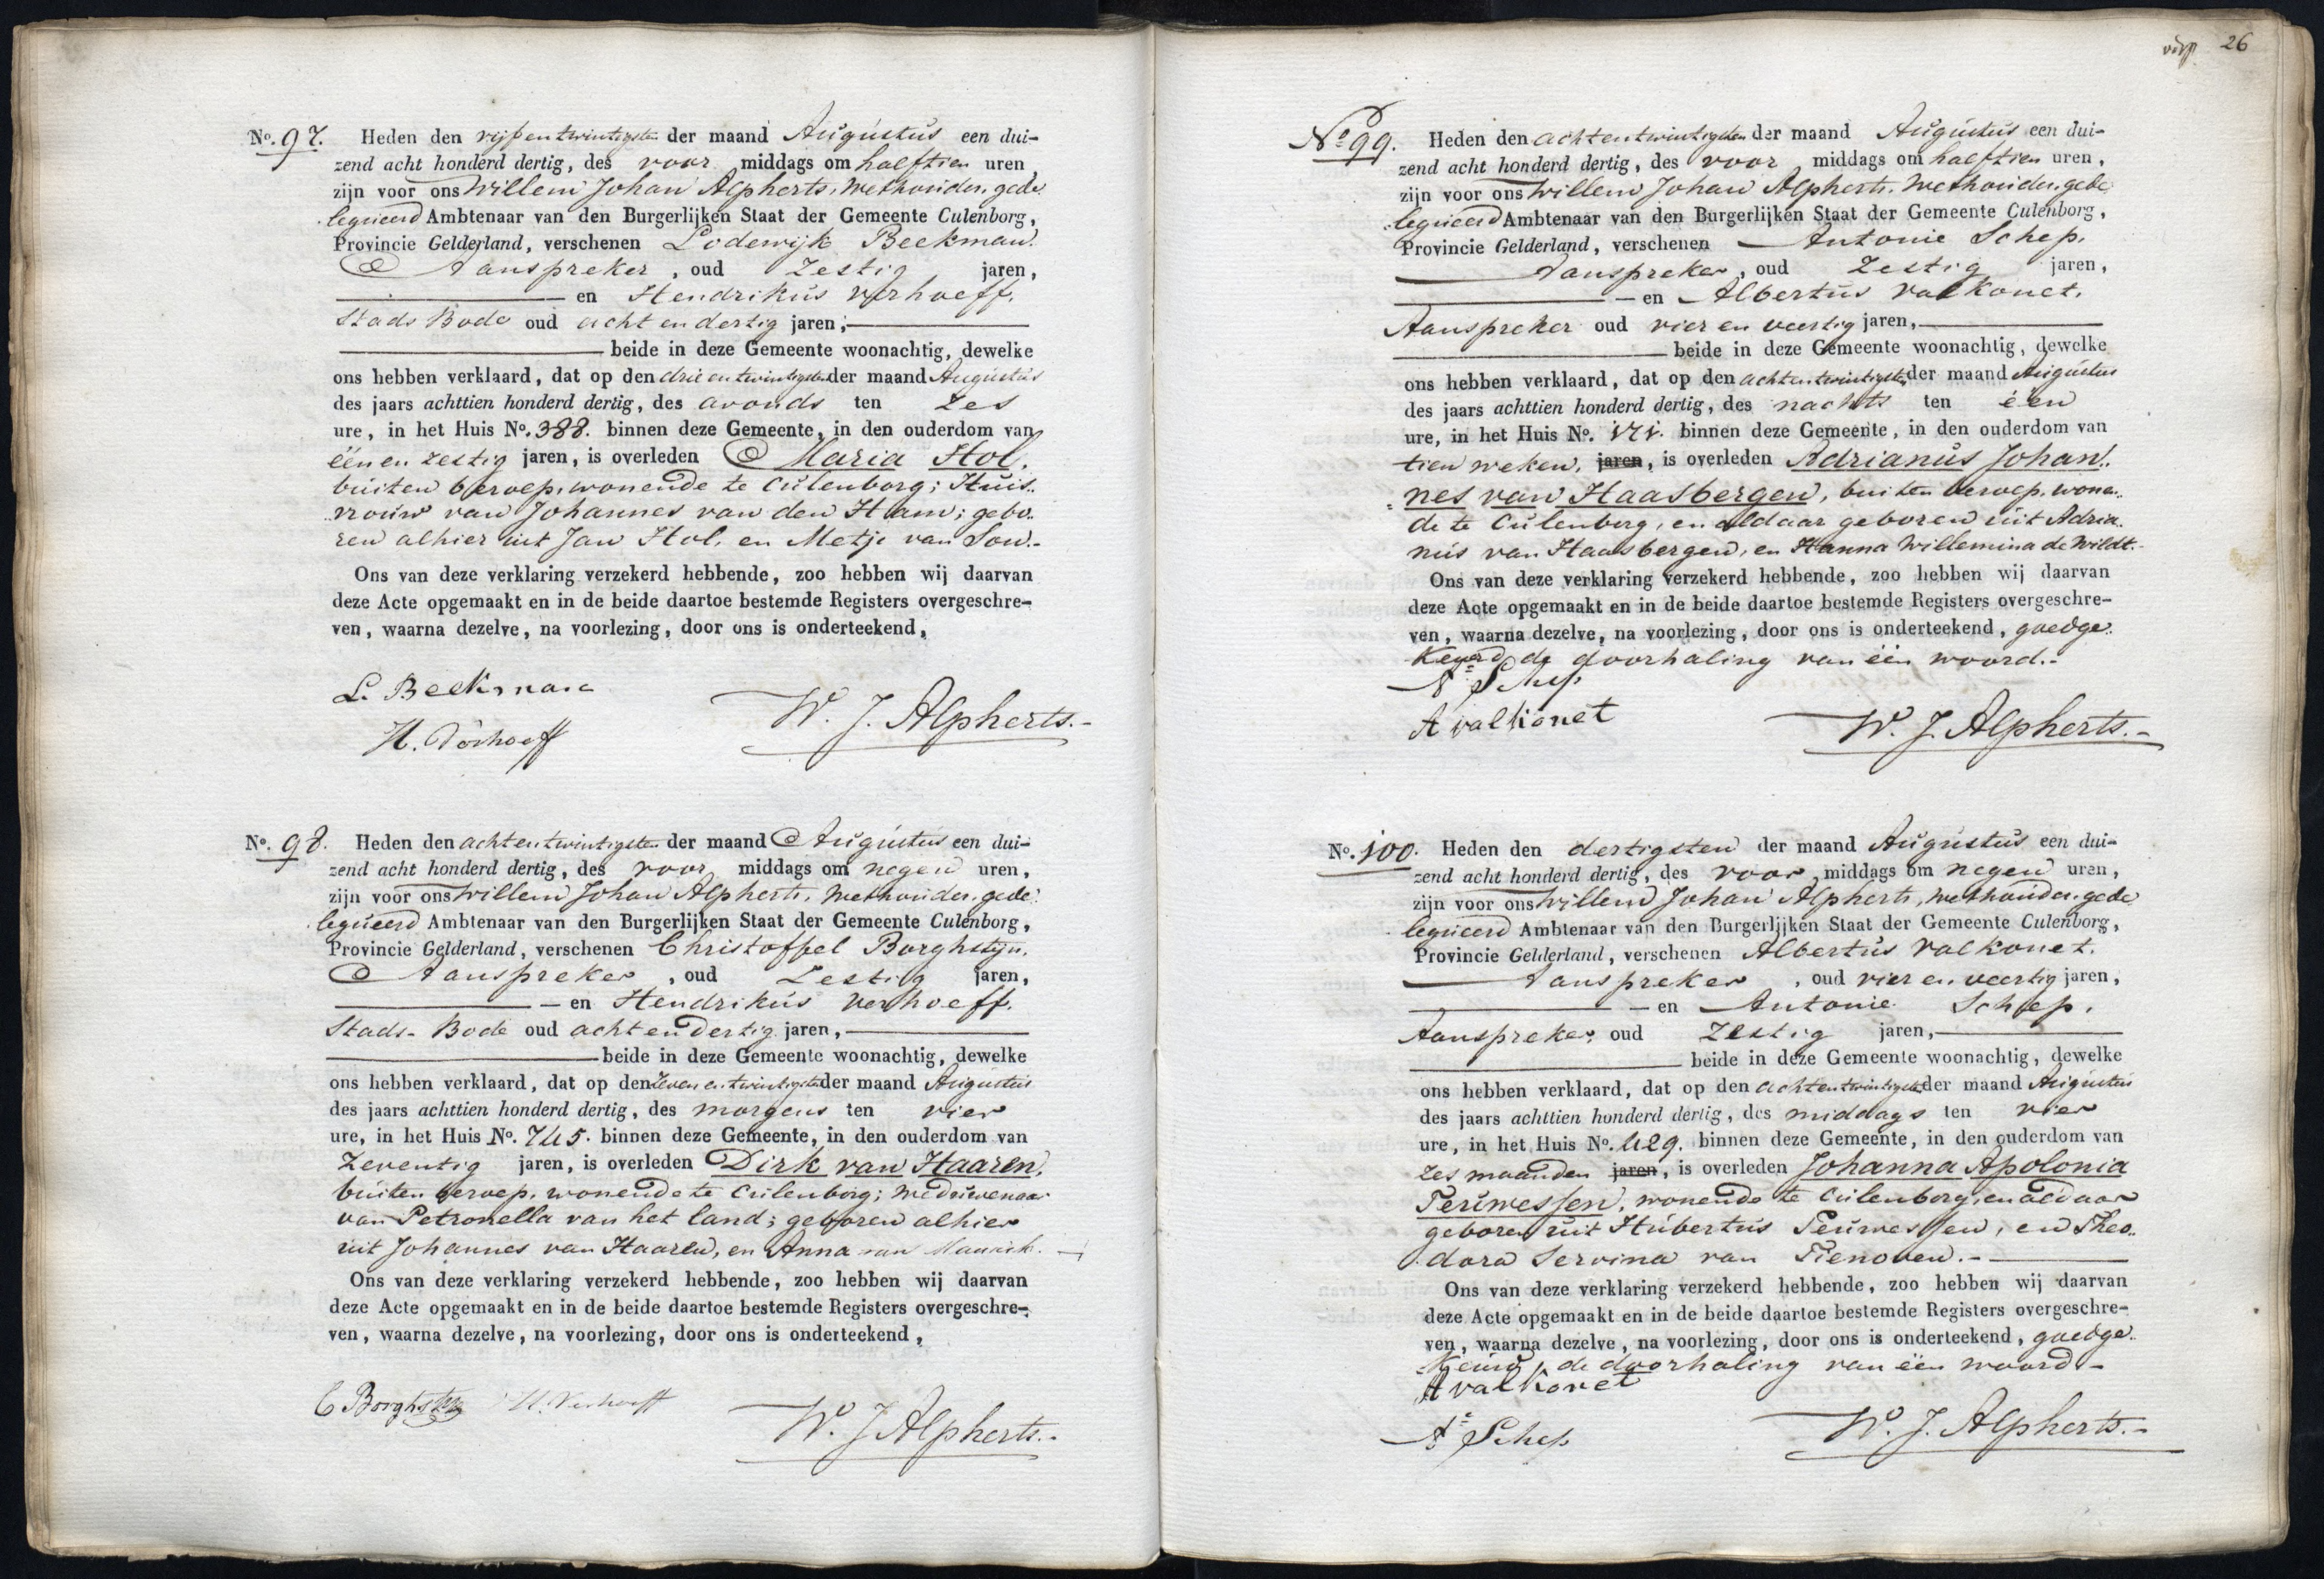 No. 97. Heden den vijfentwintigsten der maand Augustus een dui-
zend acht honderd dertig, des voor middags om halftien uren
zijn voor ons Willem Johan Alpherts, Wethouder, gede
legueerd Ambtenaar van den Burgerlijken Staat der Gemeente Culenborg,
Provincie Gelderland, verschenen Lodewijk Beekman.
Aanspreker, oud Zestig jaren,
en Hendrikus Verhoeff.
Stads Bode oud acht en dertig jaren,
beide in deze Gemeente woonachtig, dewelke
ons hebben verklaard, dat op den drieentwintigsten der maand Augustus
des jaars achttien honderd dertig, des avonds ten Zes
ure, in het Huis No. 388. binnen deze Gemeente, in den ouderdom van
één en zestig jaren, is overleden Maria Hol,
buiten beroep, wonende te Culenborg; Huis..
vrouw van Johannes van den Ham; gebo..
ren alhier uit Jan Hol, en Metje van Son.-
Ons van deze verklaring verzekerd hebbende, zoo hebben wij daarvan
deze Acte opgemaakt en in de beide daartoe bestemde Registers overgeschre-
ven, waarna dezelve, na voorlezing, door ons is onderteekend,
L. Beekman
H. Verhoeff
W. J. Alpherts.-
No. 98. Heden den achtentwintigsten der maand Augustus een dui-
zend acht honderd dertig, des voor middags om negen uren,
zijn voor ons Willem Johan Alpherts, Wethouder, gede
legueerd Ambtenaar van den Burgerlijken Staat der Gemeente Culenborg,
Provincie Gelderland, verschenen Christoffel Borghstijn.
Aanspreker, oud Zestig jaren,
en Hendrikus Verhoeff.
Stads-Bode oud acht en dertig jaren,
beide in deze Gemeente woonachtig, dewelke
ons hebben verklaard, dat op den Zevenentwintigsten der maand Augustus
des jaars achttien honderd dertig, des morgens ten vier
ure, in het Huis No. 745. binnen deze Gemeente, in den ouderdom van
Zeventig jaren, is overleden Dirk van Haaren,
buiten beroep, wonende te Culenborg; Weduwenaar
van Petronella van het land; geboren alhier
uit Johannes van Haaren, en Anna van Maurik.
Ons van deze verklaring verzekerd hebbende, zoo hebben wij daarvan
deze Acte opgemaakt en in de beide daartoe bestemde Registers overgeschre-
ven, waarna dezelve, na voorlezing, door ons is onderteekend,
C Borghstijn H. Verhoeff
W. J. Alpherts.-
26
No 99. Heden den achtentwintigsten der maand Augustus een dui-
zend acht honderd dertig, des voor middags om halftien uren,
zijn voor ons Willem Johan Alpherts, Wethouder, gede
legueerd Ambtenaar van den Burgerlijken Staat der Gemeente Culenborg,
Provincie Gelderland, verschenen Antonie Schep.
Aanspreker, oud Zestig jaren,
en Albertus Valkonet.
Aanspreker oud vier en veertig jaren,
beide in deze Gemeente woonachtig, dewelke
ons hebben verklaard, dat op den achtentwintigsten der maand Augustus
des jaars achttien honderd dertig, des nachts ten één
ure, in het Huis No. 171. binnen deze Gemeente, in den ouderdom van
tien weken, jaren, is overleden Adrianus Johan..
nes van Haasbergen, buiten beroep, wonen..
de te Culenborg, en aldaar geboren uit Adria..
nus van Haasbergen, en Hanna Willemina de Wildt.-
Ons van deze verklaring verzekerd hebbende, zoo hebben wij daarvan
deze Acte opgemaakt en in de beide daartoe bestemde Registers overgeschre-
ven, waarna dezelve, na voorlezing, door ons is onderteekend, goedge..
keurd de doorhaling van één woord.-
A Schep
A valkonet
W. J. Alpherts.-
No. 100. Heden den dertigsten der maand Augustus een dui-
zend acht honderd dertig, des voor middags om negen uren,
zijn voor ons Willem Johan Alpherts, Wethouder, gede
legueerd Ambtenaar van den Burgerlijken Staat der Gemeente Culenborg,
Provincie Gelderland, verschenen Albertus Valkonet.
Aanspreker, oud vier en veertig jaren,
en Antonie Schep.
Aanspreker, oud Zestig jaren,
beide in deze Gemeente woonachtig, dewelke
ons hebben verklaard, dat op den achtentwintigsten der maand Augustus
des jaars achttien honderd dertig, des middags ten vier
ure, in het Huis No. 429. binnen deze Gemeente, in den ouderdom van
zes maanden jaren, is overleden Johanna Apolonia
Teuwessen, wonende te Culenborg, en aldaar
geboren uit Hubertus Teuwessen, en Theo..
dora Servina van Tienoven.-
Ons van deze verklaring verzekerd hebbende, zoo hebben wij daarvan
deze Acte opgemaakt en in de beide daartoe bestemde Registers overgeschre-
ven, waarna dezelve, na voorlezing, door ons is onderteekend, goedge..
keurd de doorhaling van één woord-
A valkonet
A Schep
W. J. Alpherts.-